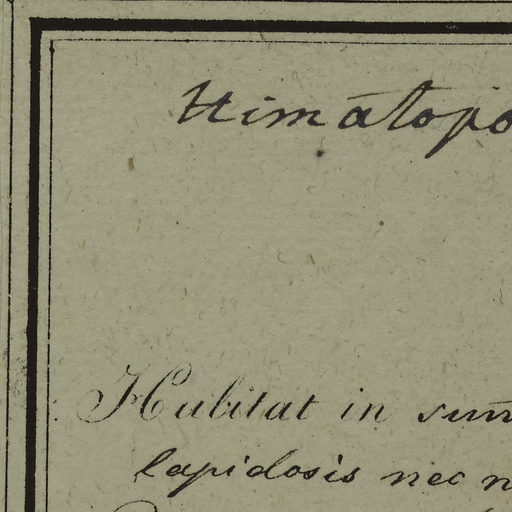 Himātopo
Habitat in sum̄
lapidosis nec n